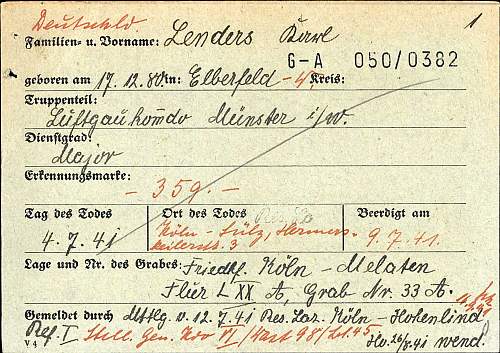 Deutschld.
1
Familien- u. Vorname: Lenders Karl
G-A 050/0382
geboren am 17.12.80 in: Elberfeld Kreis:
Truppenteil:
Luftgaukomdo Münster i/W.
Dienstgrad:
Major
Erkennungsmarke:
- 359. -
Tag des Todes Ort des Todes Beerdigt am
4.7.41 Köln - Sülz, 9.7.41.
Lage und Nr. des Grabes: Friedhf. Köln - Melaten
Flur L XX A, Grab Nr. 33 A.
Gemeldet durch v. 12.7.41 Res. Laz. Köln - Hohenlind
V 4 Ref. I Stell. Gen. Kdo VI/